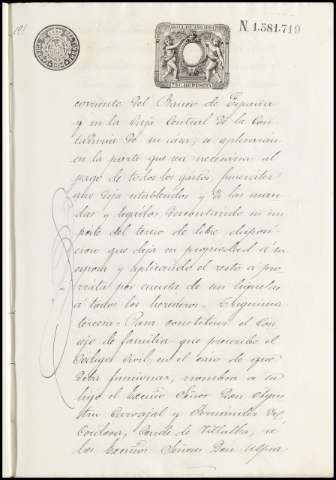 191
N. 1.581.719
corriente del Banco de España
y en la Caja Central de la Con
de su casa, se aplicarán
en la parte que sea necesaria al
pago de todos los gastos, funerales
que deja establecidos y de las man
das y legados descontando su im
porte del tercio de libre dispo
sicion que deja en propiedad á su
esposa y aplicando el resto a pro
rrata por cuenta de sus legítimas
á todos los herederos. = Trigesima
tercera = Para constituir el Con
sejo de familia que prescribe el
Codigo Civil, en el caso de que
deba funcionar, nombra a su
hijo el Excmo Señor Don Agus
tin Carvajal y Fernandez de
Cordova, Conde de Villalba, a
los Excmos Señores Don